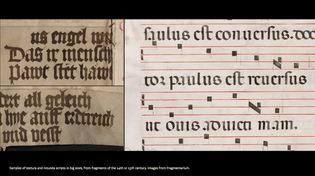 us engel wil
Das ir mensch
Pawt stet haus
all geleich
wie auff erdtreich
vnd vesst
saulus est conuersus.doc
tor paulus est reuersus
ut ouis aduicti
Samples of textura and rotunda scripts in big sizes, from fragments of the 14th or 15th century. Images from Fragmentarium.